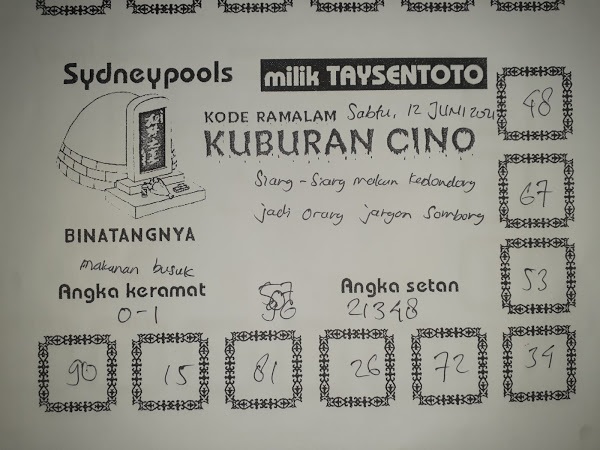 Sydneypools milik TAYSENTOTO
48
KODE RAMALAM Sabtu, 12 JUNI 2021
KUBURAN CINO
Siang - Siang makan kedondong
67
jadi orang jangan Sombong
BINATANGNYA
makanan busuk
53
Angka keramat Angka setan
0-1 96 21348
90 15 81 26 72 34